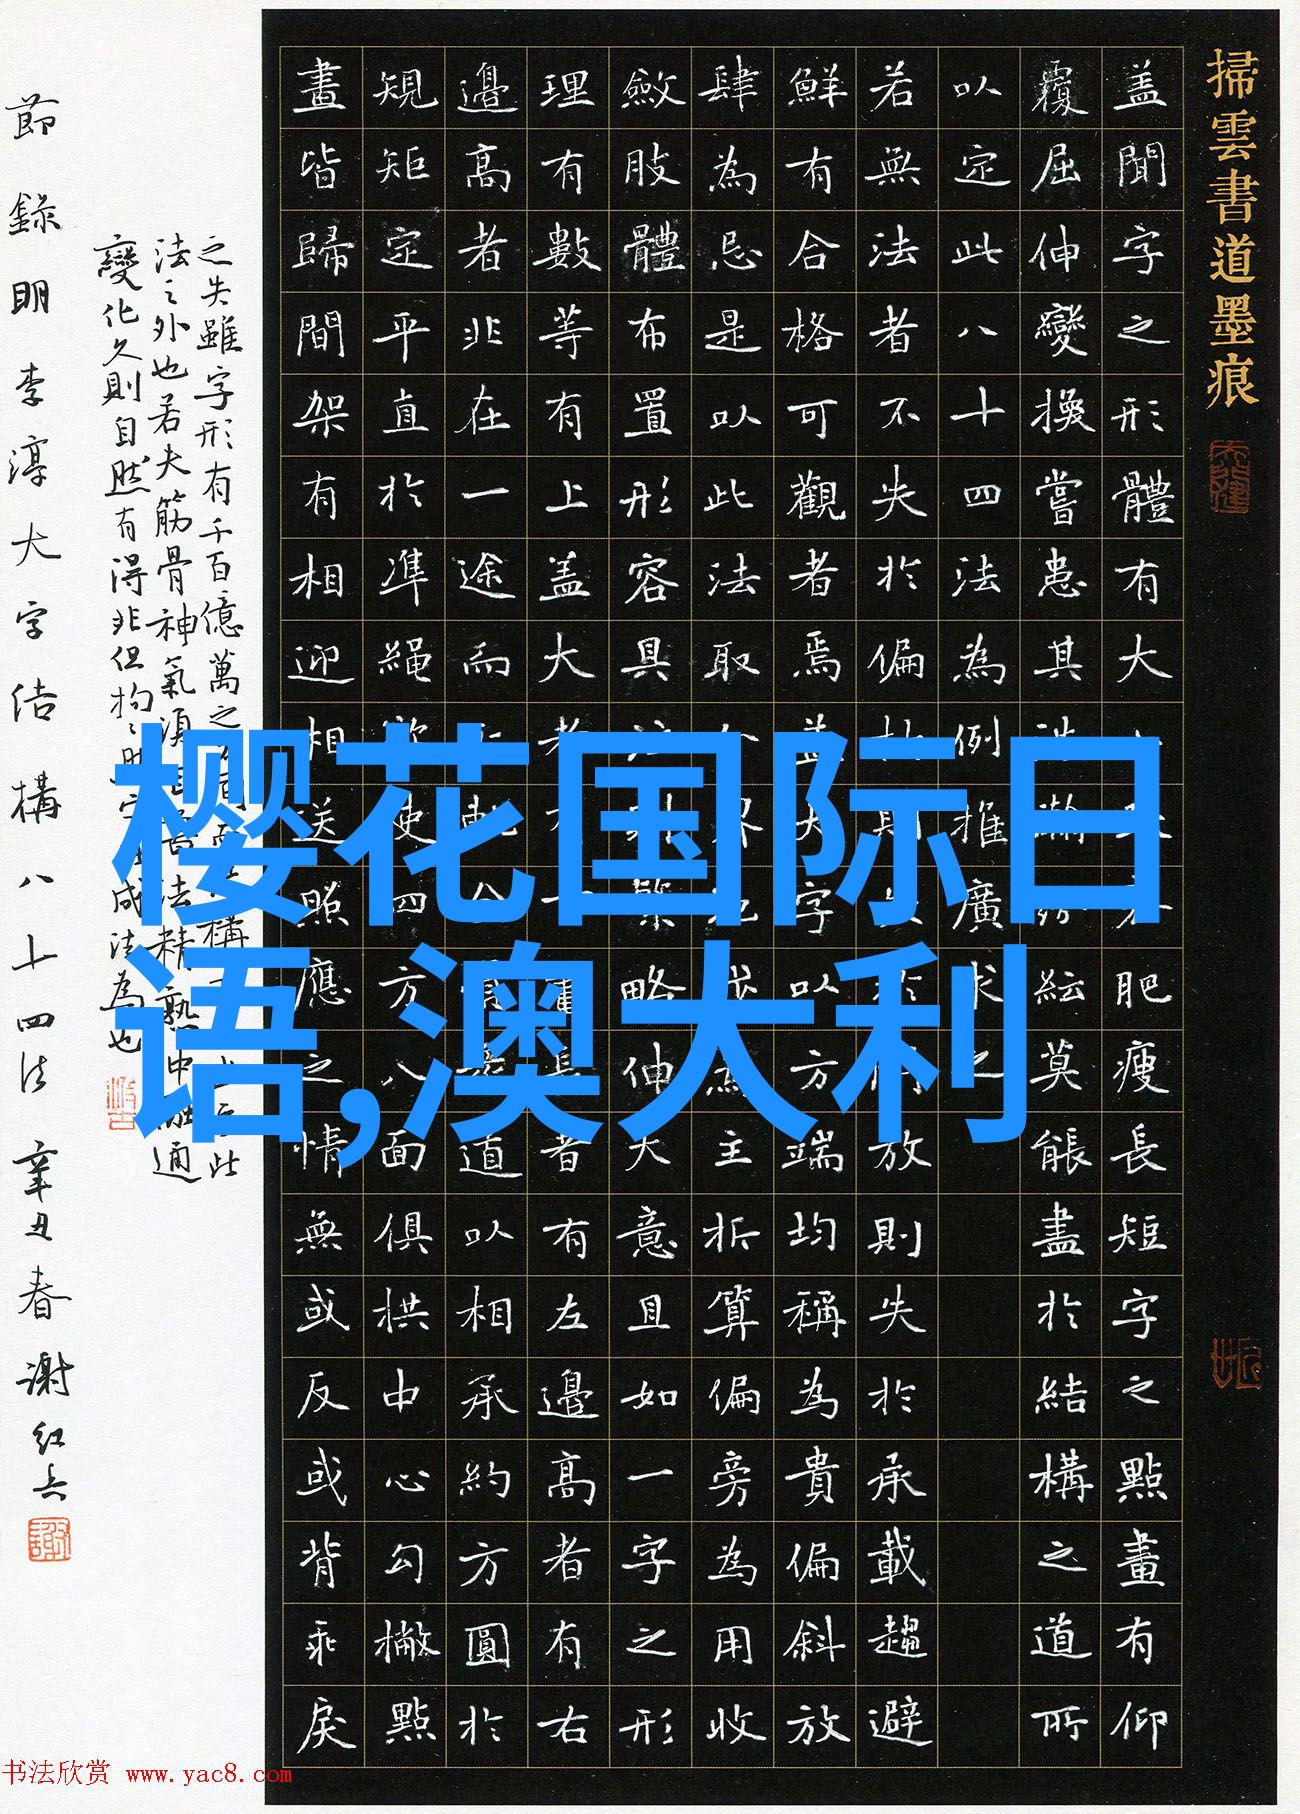 掃雲書道墨痕
盖聞字之形體有大肥瘦長短字之點畫有仰
覆屈伸變換嘗患其紜莫能盡於結構之道所
以定此八十四法為例推廣求之
若無法者不失於偏放則失於承載趨避
鮮有合格可觀者焉盖大字以方端均稱為貴偏斜放
肆為忌是以此法取主折算偏旁為用收
斂肢體布置形容具略伸大意且如一字之形
理有數等有上盖大者者有左邊高者有右
邊高者非在一途而道以相承約方圓於
規矩定平直於準繩欲使四方八面俱拱中心勾撇點
畫皆歸間架有相迎相送照應之情無或反或背乖戾
之失雖字形有千百億萬之構此
法之外也若夫筋骨神氣須法精熟中通
變化久則自然有得非但拘成法為也
節錄明李淳大字結構八十四法辛丑春謝紅兵
樱花国际目
语,澳大利
书法欣赏 www.yac8.com